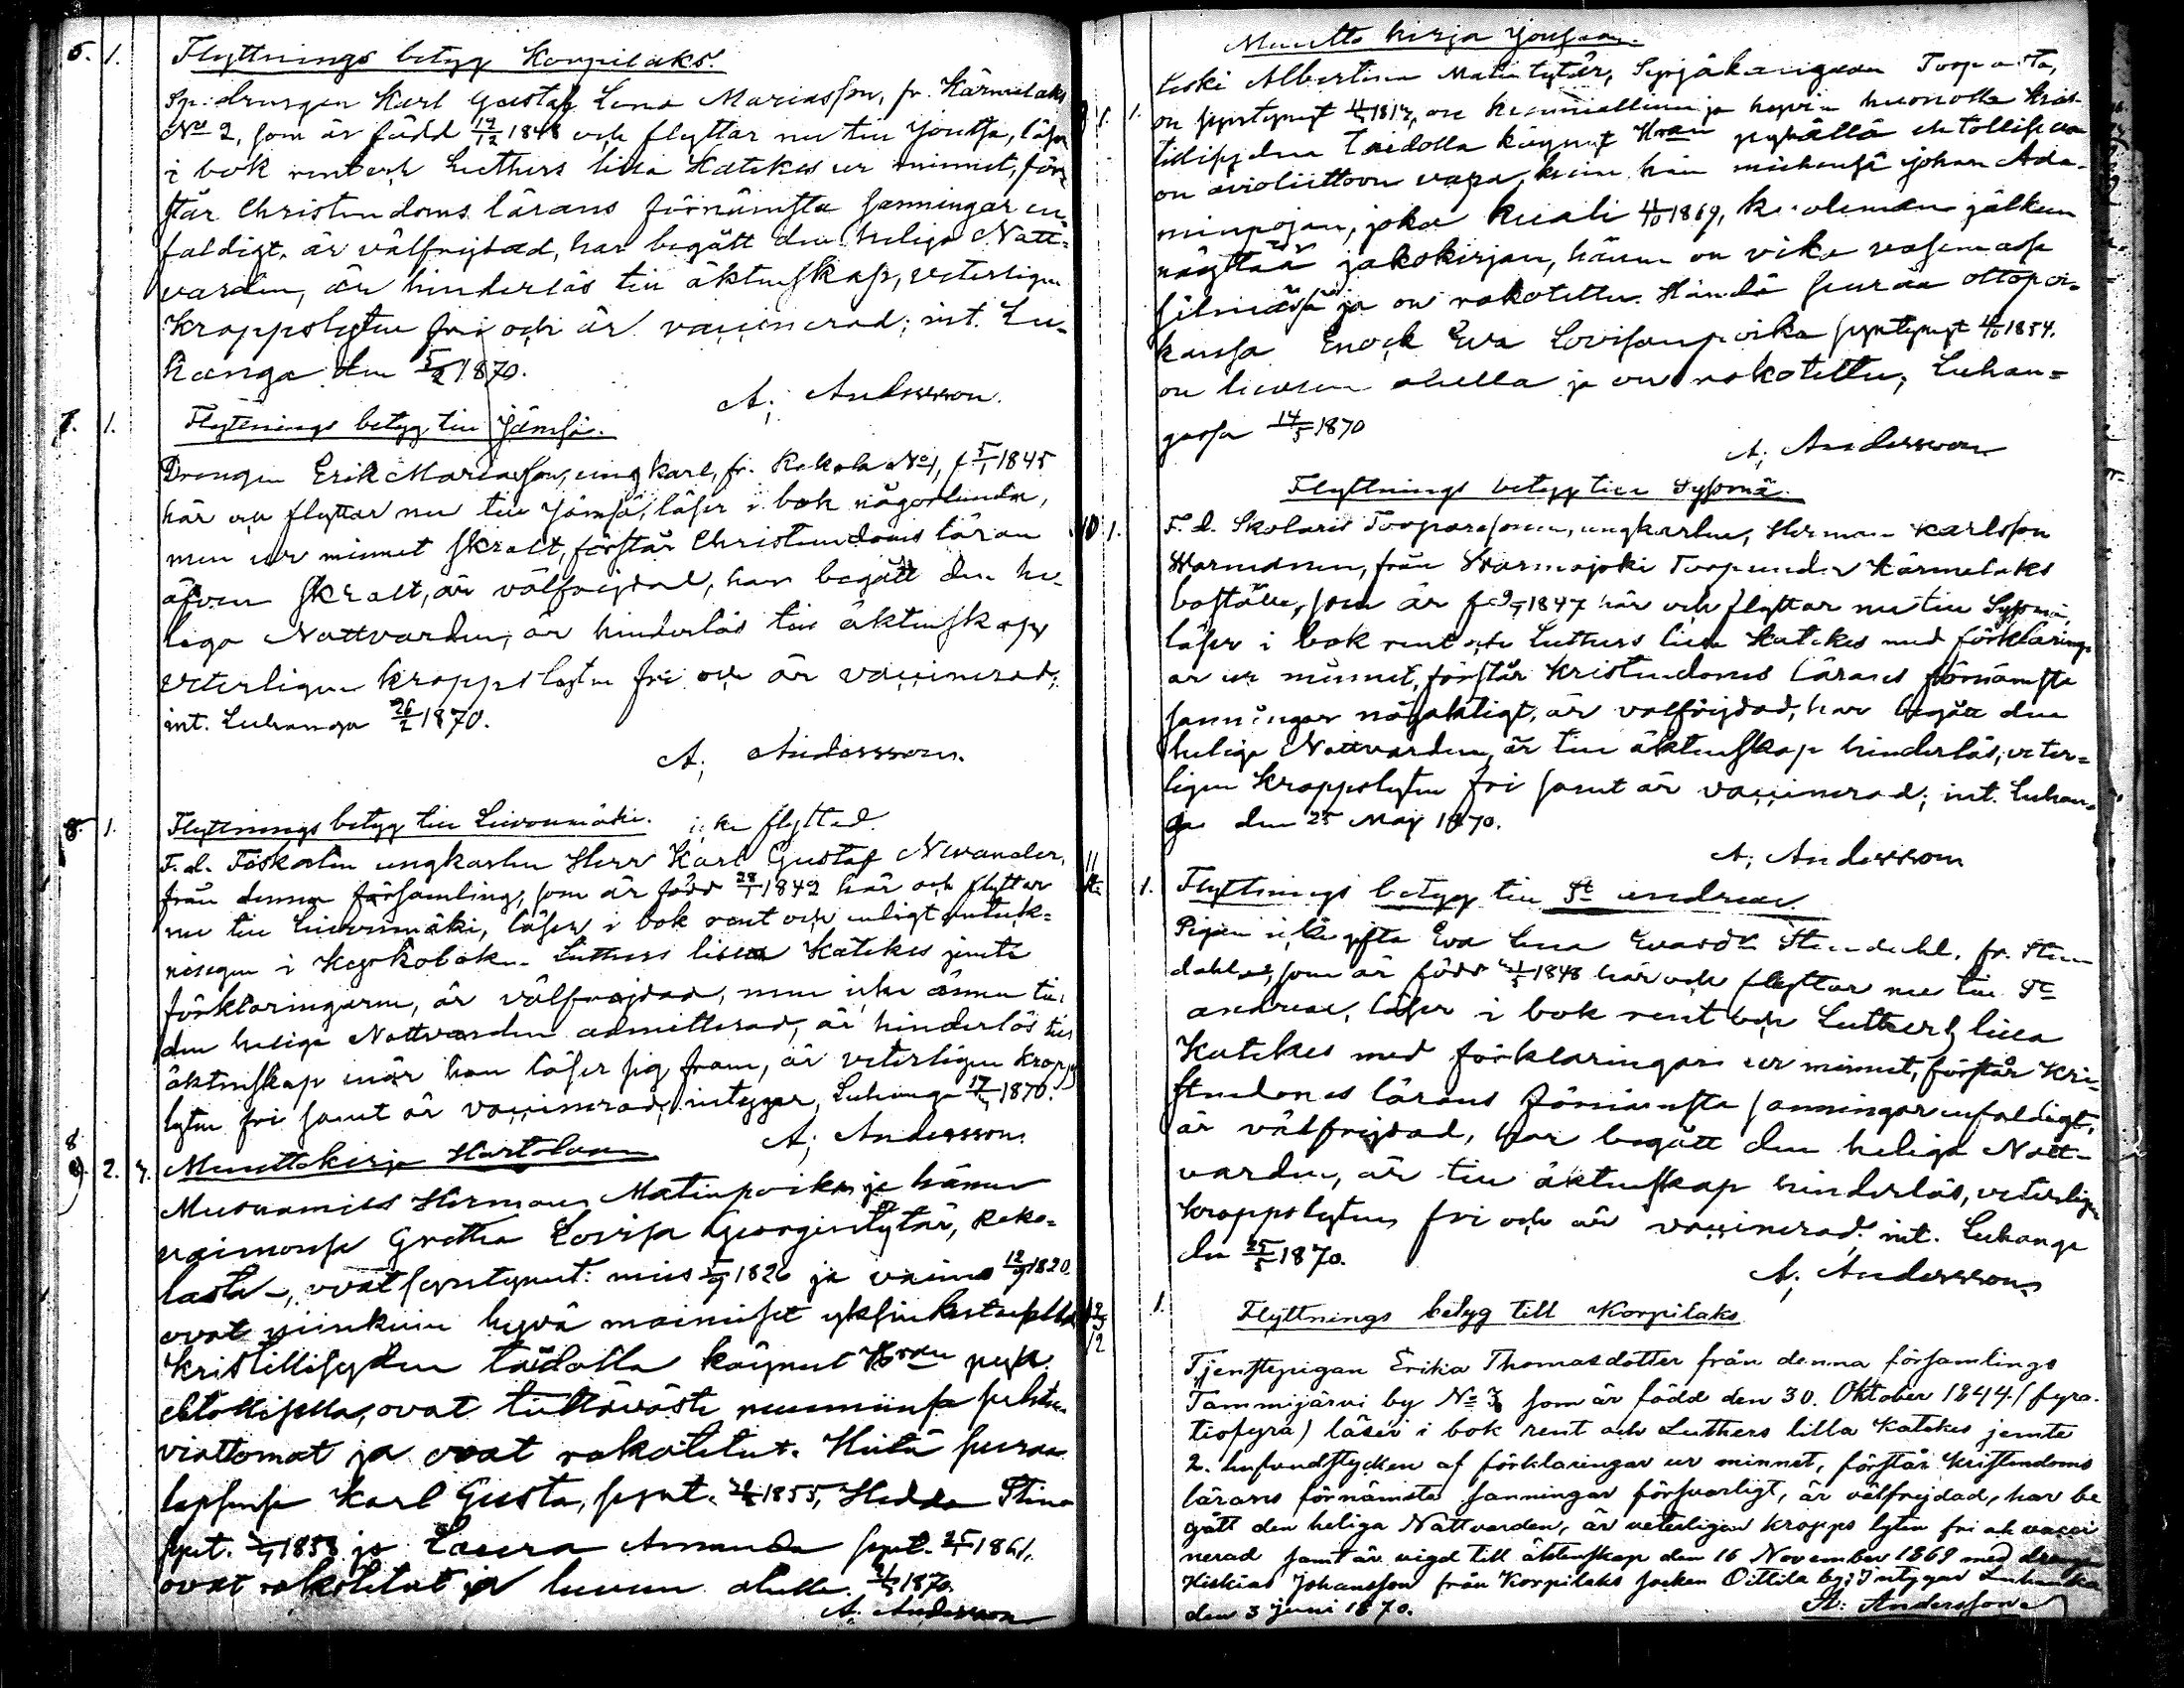 5. 1. Flyttnings betyg Korpilaks.
Sp: drengen Karl Gustaf Lena Mariasson, fr. Kärmelaks
No 2, som är född 19/12 1848 och flyttar nu till Joutsa, läser
i bok rent och Luthers lilla Katekes ur minnet, för-
står Christendoms lärans förnämsta sanningar en-
faldigt, är välfrejdad, har begått den heliga Natt-
varden, är hinderlös till äktenskap, veterligen
kroppslyten fri och är vaccinerad; int. Lu-
hanga den 5/2 1870.
A; Andersson.
7. 1. Flyttnings betyg till Jämsä.
Drengen Erik Mariasson, ungkarl, fr. Kekola No 1, f 5/1 1845
här och flyttar nu till Jämsä, läser i bok någorlunda,
men ur minnet skralt, förstår Christendoms läran
äfven skralt, är välfrejdad, har begått den he-
liga Nattvarden, är hinderlös till äktenskap
veterligen kroppslyten fri och är vaccinerad;
int. Luhanga 26/2 1870.
A; Andersson.
8. 1. Flyttnings betyg till Leivonmäki. icke flyttad.
F. d. ungkarlen Herr Karl Gustaf Nevander,
från denna församling, som är född 28/1 1842 här och flyttar
nu till Leivonmäki, läser i bok rent och enligt anteck-
ningen i Kyrkoboken Luthers lilla Katekes jemte
förklaringarne, är välfrejdad, men icke ännu till
den heliga Nattvarden admitterad, är hinderlös till
äktenskap när han läser sig fram, är veterligen kropps
lyten fri samt är vaccinerad, intygar, Luhanga 17/ 1870.
A; Andersson.
8
9. 2. 3. Muuttokirja Hartolaan
Muonamies Herman Matinpoika ja hänen
vaimonsa Gretha Lovisa Georgintytär, Keko-
lasta, ovat syntynet: mies 1826 ja vaimo 12/9 1820.
ovat niinkuin hyvä maineiset yksinkertaisella
kristillisyden taidolla käynet Herran pyhä
ehtollisella, ovat tiettäväste ruumiinsa puhtu-
viattomat ja ovat rokotetut. Heitä seuraa
lapsensa Karl Gusta, synt. 1855, Hedda Stina
synt. 1858 ja Laura Amanda synt. 25/ 1861.
ovat rokotetut ja luvun alulla. 1870.
A. Andersson
Muutto kirja Joutsaan.
1. Leski Albertina Matin tytär, Syrjäkangaan Torpasta,
on syntynyt 1817, on kunniallinen ja hyvin huonolla kris-
tillisyden taidolla käynyt Hran pyhällä ehtollisella
on avioliittoon vapa, kuin hän miehensä Johan Ada-
minpojan, joka kuoli 1869, kuoleman jälkeen
näyttää jakokirjan, hänen on vika vasemassa
silmässä ja on rokotettu. Häntä seuraa ottopoi-
kansa Enock Eva Lovisanpoika syntynyt 1854.
on luvun alulla ja on rokotettu; Luhan-
gassa 14/5 1870
A; Andersson
Flyttnings betyg till Sysmä.
10 1. F. d. Skolaris Torparesonen, ungkarlen, Herman Karlsson
Warmanen, från Warmajoki Torp under Kärmelaks
boställe, som är f 9/ 1847 här och flyttar nu till Sysmä,
läser i bok rent och Luthers lilla Katekes med förklaring
ar ur minnet, förstår Kristendoms lärans förnämsta
sanningar nöjaktigt, är välfrejdad, har begått den
heliga Nattvarden, är till äktenskap hinderlös, veter-
ligen kroppslyten fri samt är vaccinerad; int. Luhan-
ga den 25 Maj 1870.
A; Andersson
11
1. Flyttnings betyg till St andreae.
Pigan icke gifta Eva Lena Stendahl, fr. Sten
dahl, som är född 1848 här och flyttar nu till St
andreae, läser i bok rent och Luthers lilla
Katekes med förklaringar ur minnet, förstår Kri-
stendoms lärans förnämsta sanningar enfaldigt,
är välfrejdad, har begått den heliga Natt-
varden, är till äktenskap hinderlös, veterligen
kroppslyten fri och är vaccinerad. int. Luhanga
den 25/5 1870.
A; Andersson
12
1. Flyttnings betyg till Korpilaks
Tjenstepigan Erika Thomasdotter från denna församlings
Tammijärvi by No 3 som är född den 30. Oktober 1844. (fyra-
tiofyra) läser i bok rent och Luthers lilla Katekes jemte
2. hufvudstycken af förklaringar ur minnet, förstår Kristendoms
lärans förnämsta sanningar försvarligt, är välfrejdad, har be
gått den heliga Nattvarden, är veterligen kropps lyten fri och vacci
nerad samt är vigd till äktenskap den 16 November 1869 med drengen
Hiskias Johansson från Korpilaks socken Oittila by; Intygar Luhanka
den 3 juni 1870.
A: Andersson